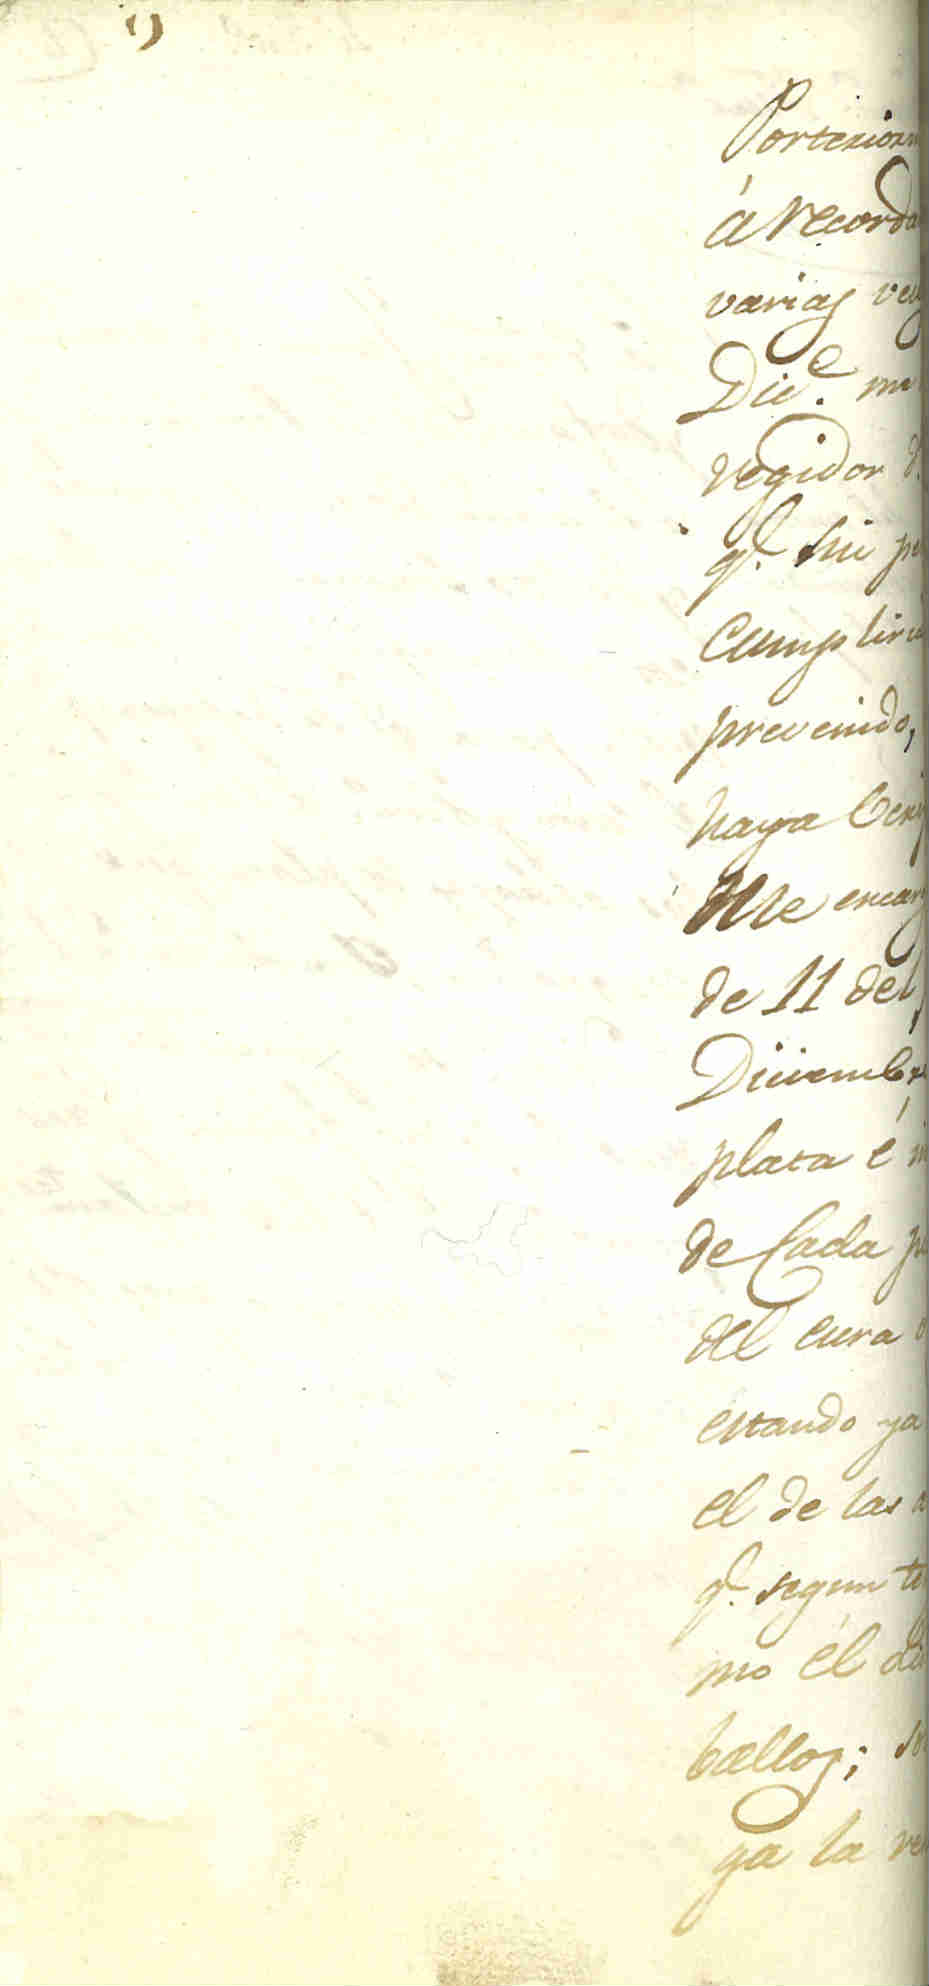 Posteriorm
á recorda
varias vec
Dic.e mi
regidor d.
q.e sin pe
cumplirá
prevenido,
haya
Me encarg
de 11 del
Diciembre
plata é in
de Cada p
del cura
estando ya
el de las a
q.e segun te
mo él di
ballos; so
ya la ve